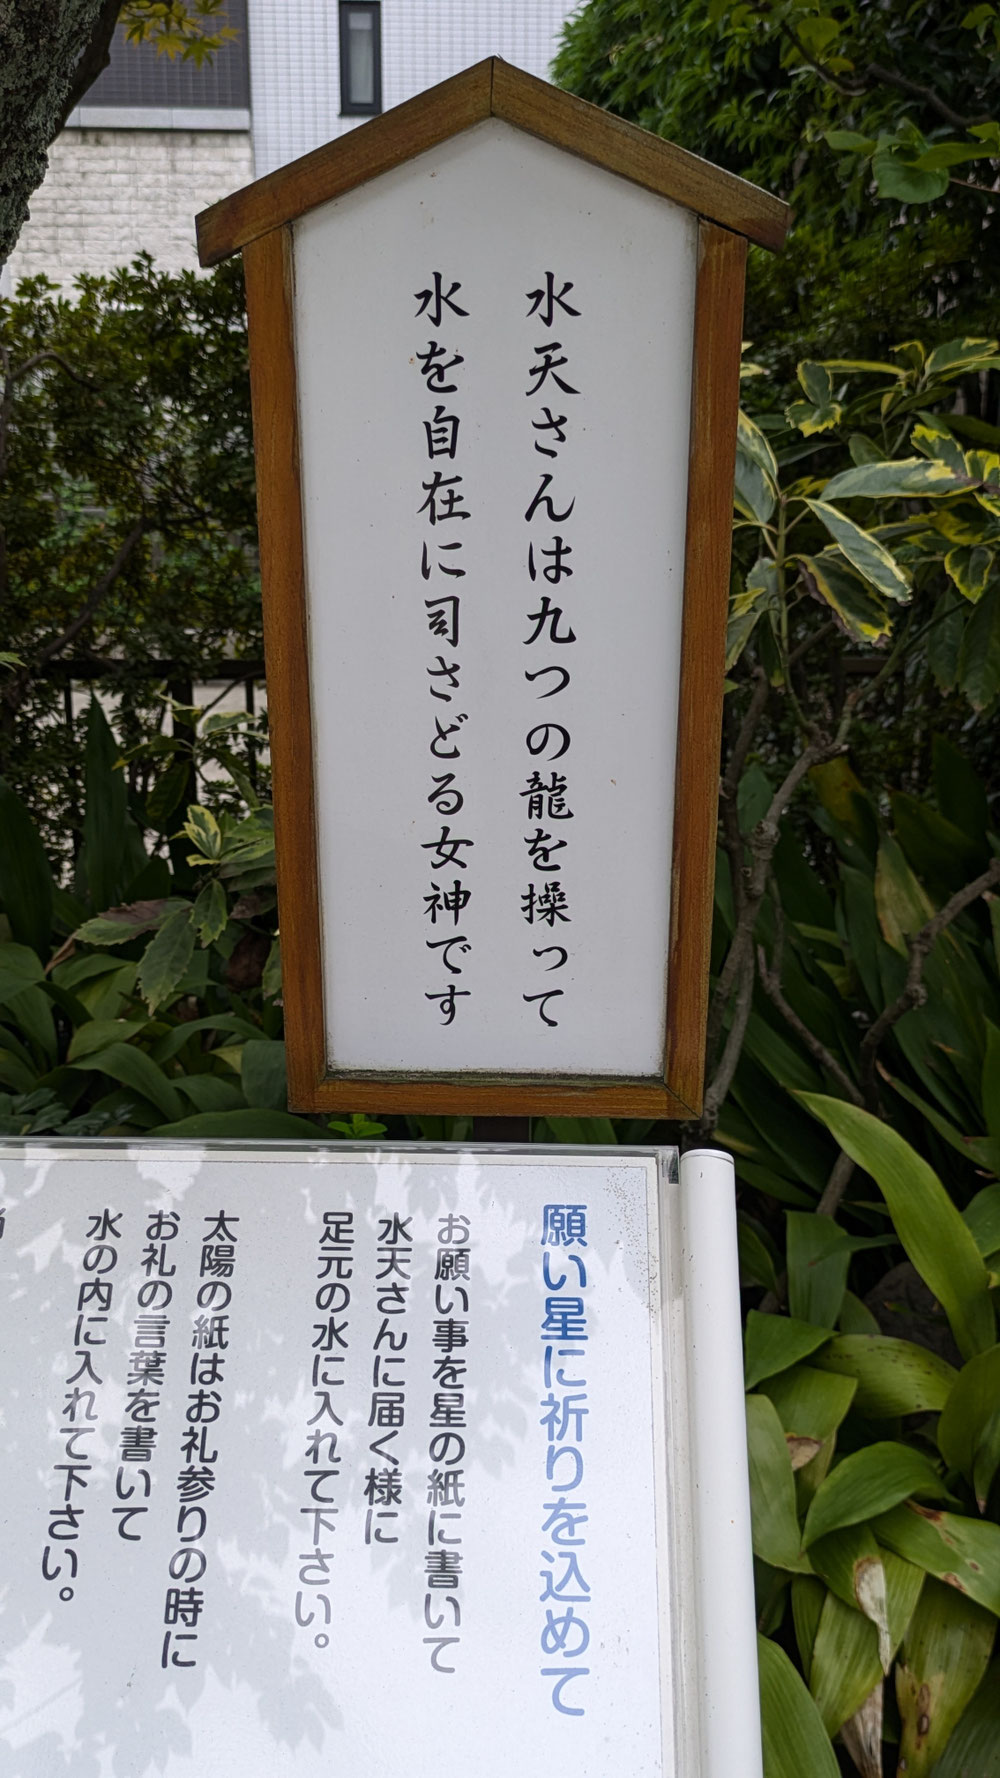 水天さんは九つの龍を操って
水を自在に司さどる女神です
願い星に祈りを込めて
お願い事を星の紙に書いて
水天さんに届く様に
足元の水に入れて下さい。
太陽の紙はお礼参りの時に
お礼の言葉を書いて
水の内に入れて下さい。